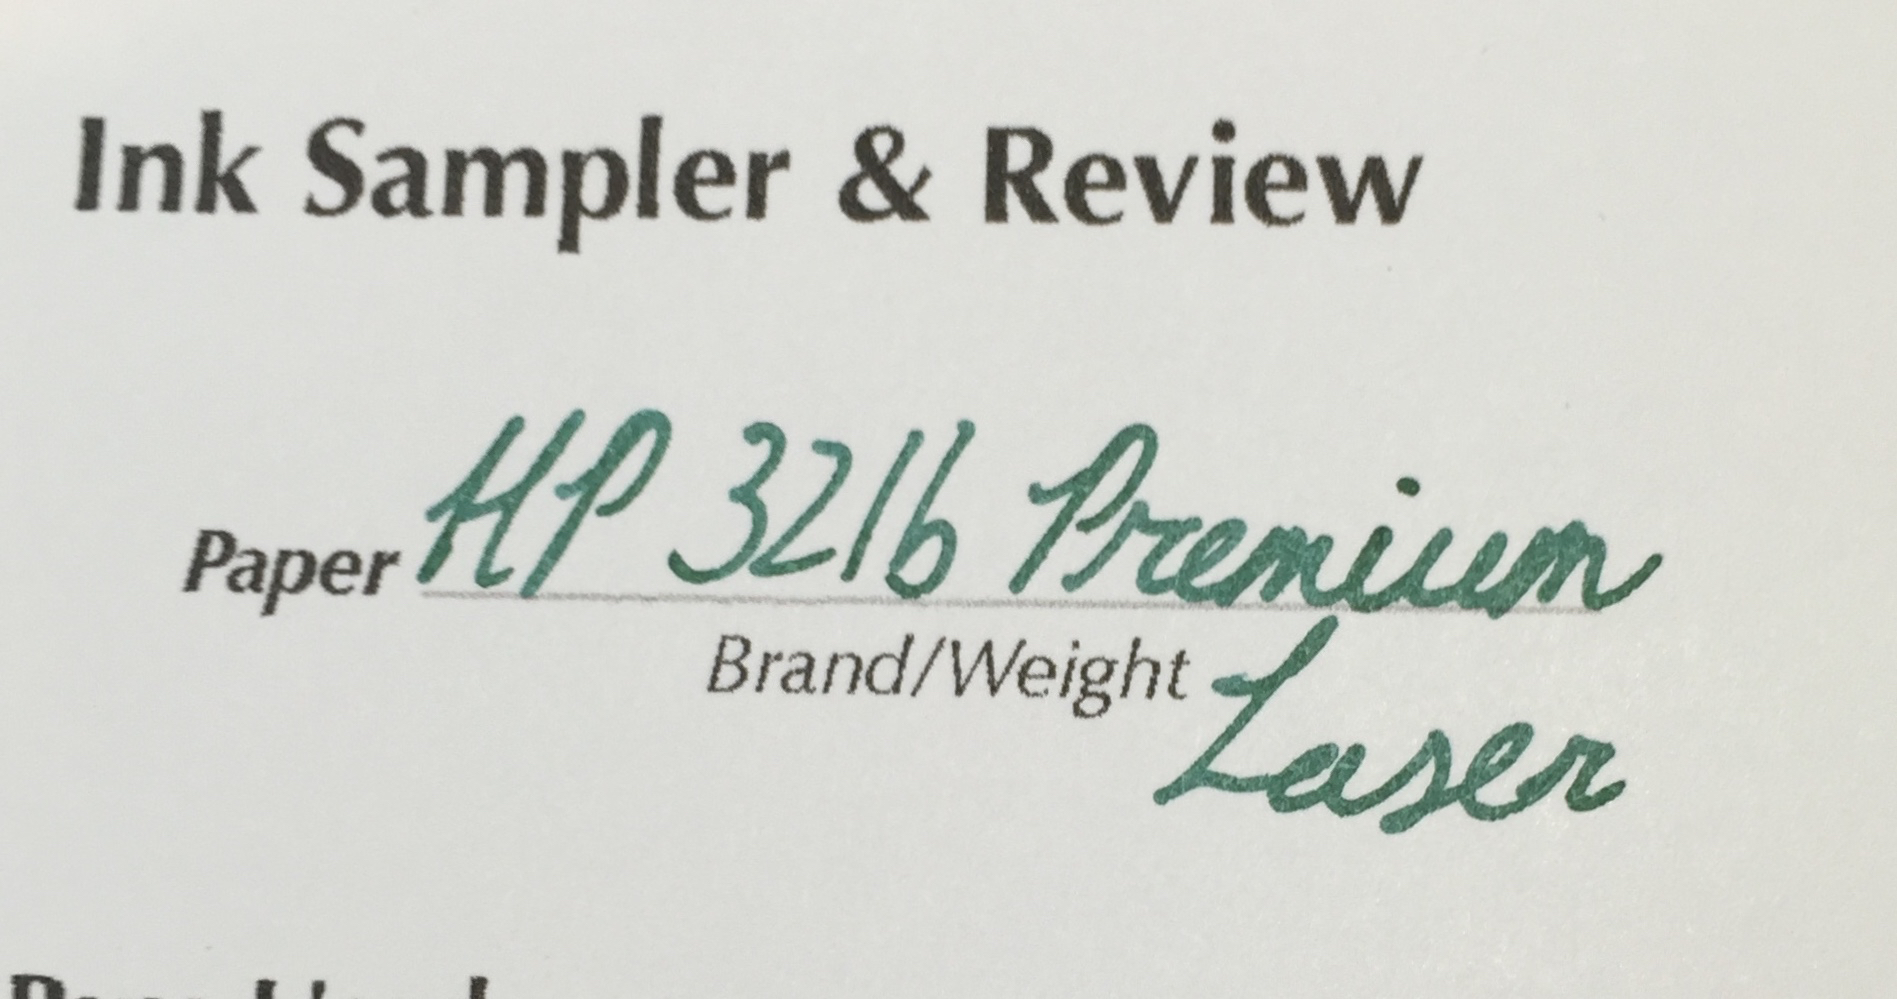 Ink Sampler & Review
Paper HP 32lb Premium
Brand/Weight
Laser